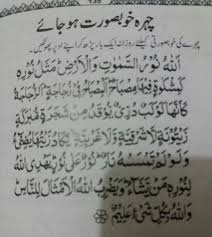 چہرہ خوبصورت ہو جائے
چہرے کی خوبصورتی کیلئے روزانہ ایک بار پڑھ کر اپنے اوپر پھونکیں۔
اَللّٰهُ نُوْرُ السَّمٰوٰتِ وَالْاَرْضِ مَثَلُ نُوْرِهٖ
كَمِشْكٰوةٍ فِيْهَا مِصْبَاحٌ اَلْمِصْبَاحُ فِيْ زُجَاجَةٍ اَلزُّجَاجَةُ
كَاَنَّهَا كَوْكَبٌ دُرِّيٌّ يُّوْقَدُ مِنْ شَجَرَةٍ مُّبٰرَكَةٍ
زَيْتُوْنَةٍ لَّا شَرْقِيَّةٍ وَّلَا غَرْبِيَّةٍ يَّكَادُ زَيْتُهَا يُضِيْٓءُ
وَلَوْ لَمْ تَمْسَسْهُ نَارٌ نُوْرٌ عَلٰى نُوْرٍ يَهْدِي اللّٰهُ
لِنُوْرِهٖ مَنْ يَّشَآءُ وَيَضْرِبُ اللّٰهُ الْاَمْثَالَ لِلنَّاسِ
وَاللّٰهُ بِكُلِّ شَيْءٍ عَلِيْمٌ